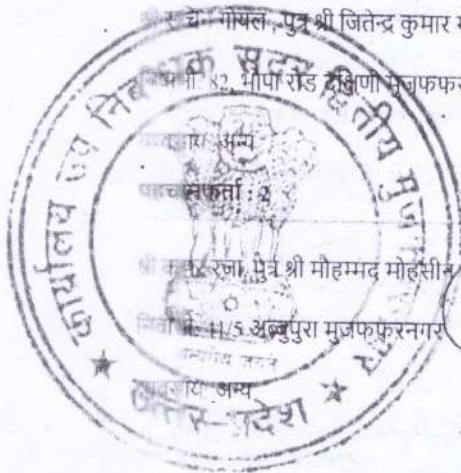 गोयल , पुत्र श्री जितेन्द्र कुमार
82, भोपा रोड दक्षिणी मुजफ्फर
व्यवसाय अन्य
पहचानकर्ता : 2
श्री रजा, पुत्र श्री मौहम्मद मोहसीन
निवासी: 11/5 अब्बुपुरा मुजफफरनगर
व्यवसाय अन्य
कार्यालय उप निबन्धक सदर द्वितीय
उत्तर-प्रदेश